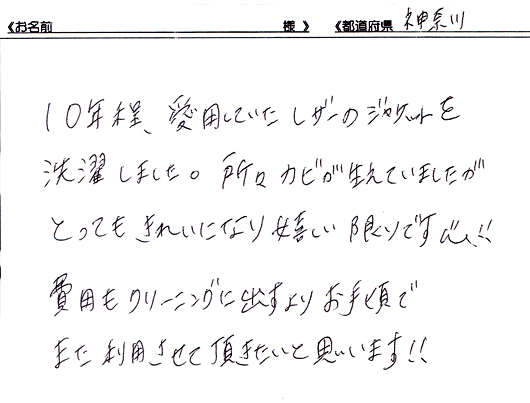 《お名前 様 》 《都道府県 神奈川
10年程、愛用していたレザーのジャケットを
洗濯しました。所々カビが生えていましたが
とってもきれいになり嬉しい限りです!!
費用もクリーニングに出すよりお手頃で
また利用させて頂きたいと思います!!